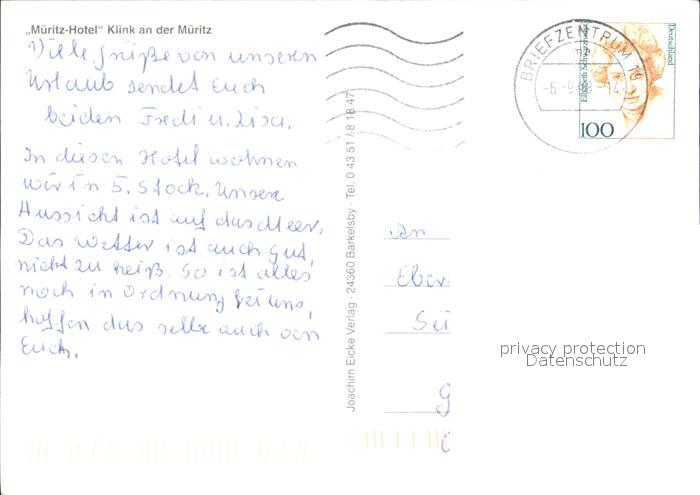 „Müritz-Hotel“ Klink an der Müritz
Viele Grüße von unseren
Urlaub sendet Euch
beiden Fredi u. Lisa.
In diesen Hotel wohnen
wir in 5. Stock. Unsere
Aussicht ist auf das Meer.
Das Wetter ist auch gut,
nicht zu heiß. So ist alles
noch in Ordnung bei uns,
hoffen das selbe auch von
Euch.
Joachim Eicke Verlag · 24360 Barkelsby · Tel. 0 43 51 / 8 18 47
BRIEFZENTRUM 18
Deutschland
Elisabeth Schwarzhaupt
100
An
Eber
Sei
privacy protection
Datenschutz